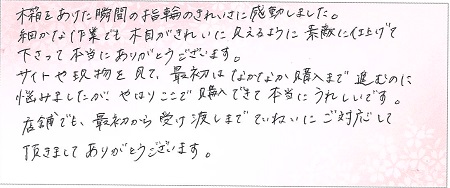 木箱をあけた瞬間の指輪のきれいさに感動しました。
細かな作業でも木目がきれいに見えるように素敵に仕上げて
下さって本当にありがとうございます。
サイトや現物を見て、最初はなかなか購入まで進むのに
悩みましたが、やはりここで購入できて本当にうれしいです。
店舗でも、最初から受け渡しまでていねいにご対応して
頂きましてありがとうございます。